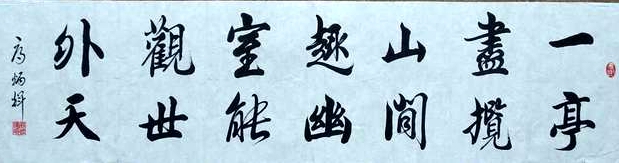 一亭
盡攬
山間
趣幽
室能
觀世
外天